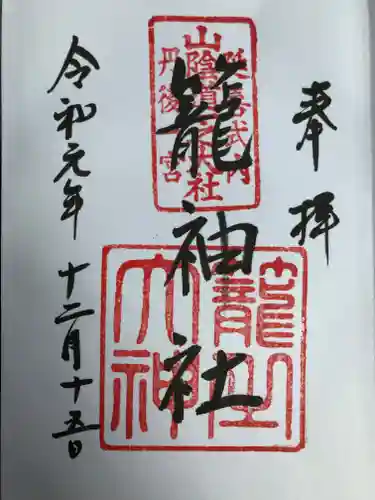 奉拝
延喜式内
山陰道之大社
丹後一宮
籠神社
籠之大神
令和元年十二月十五日